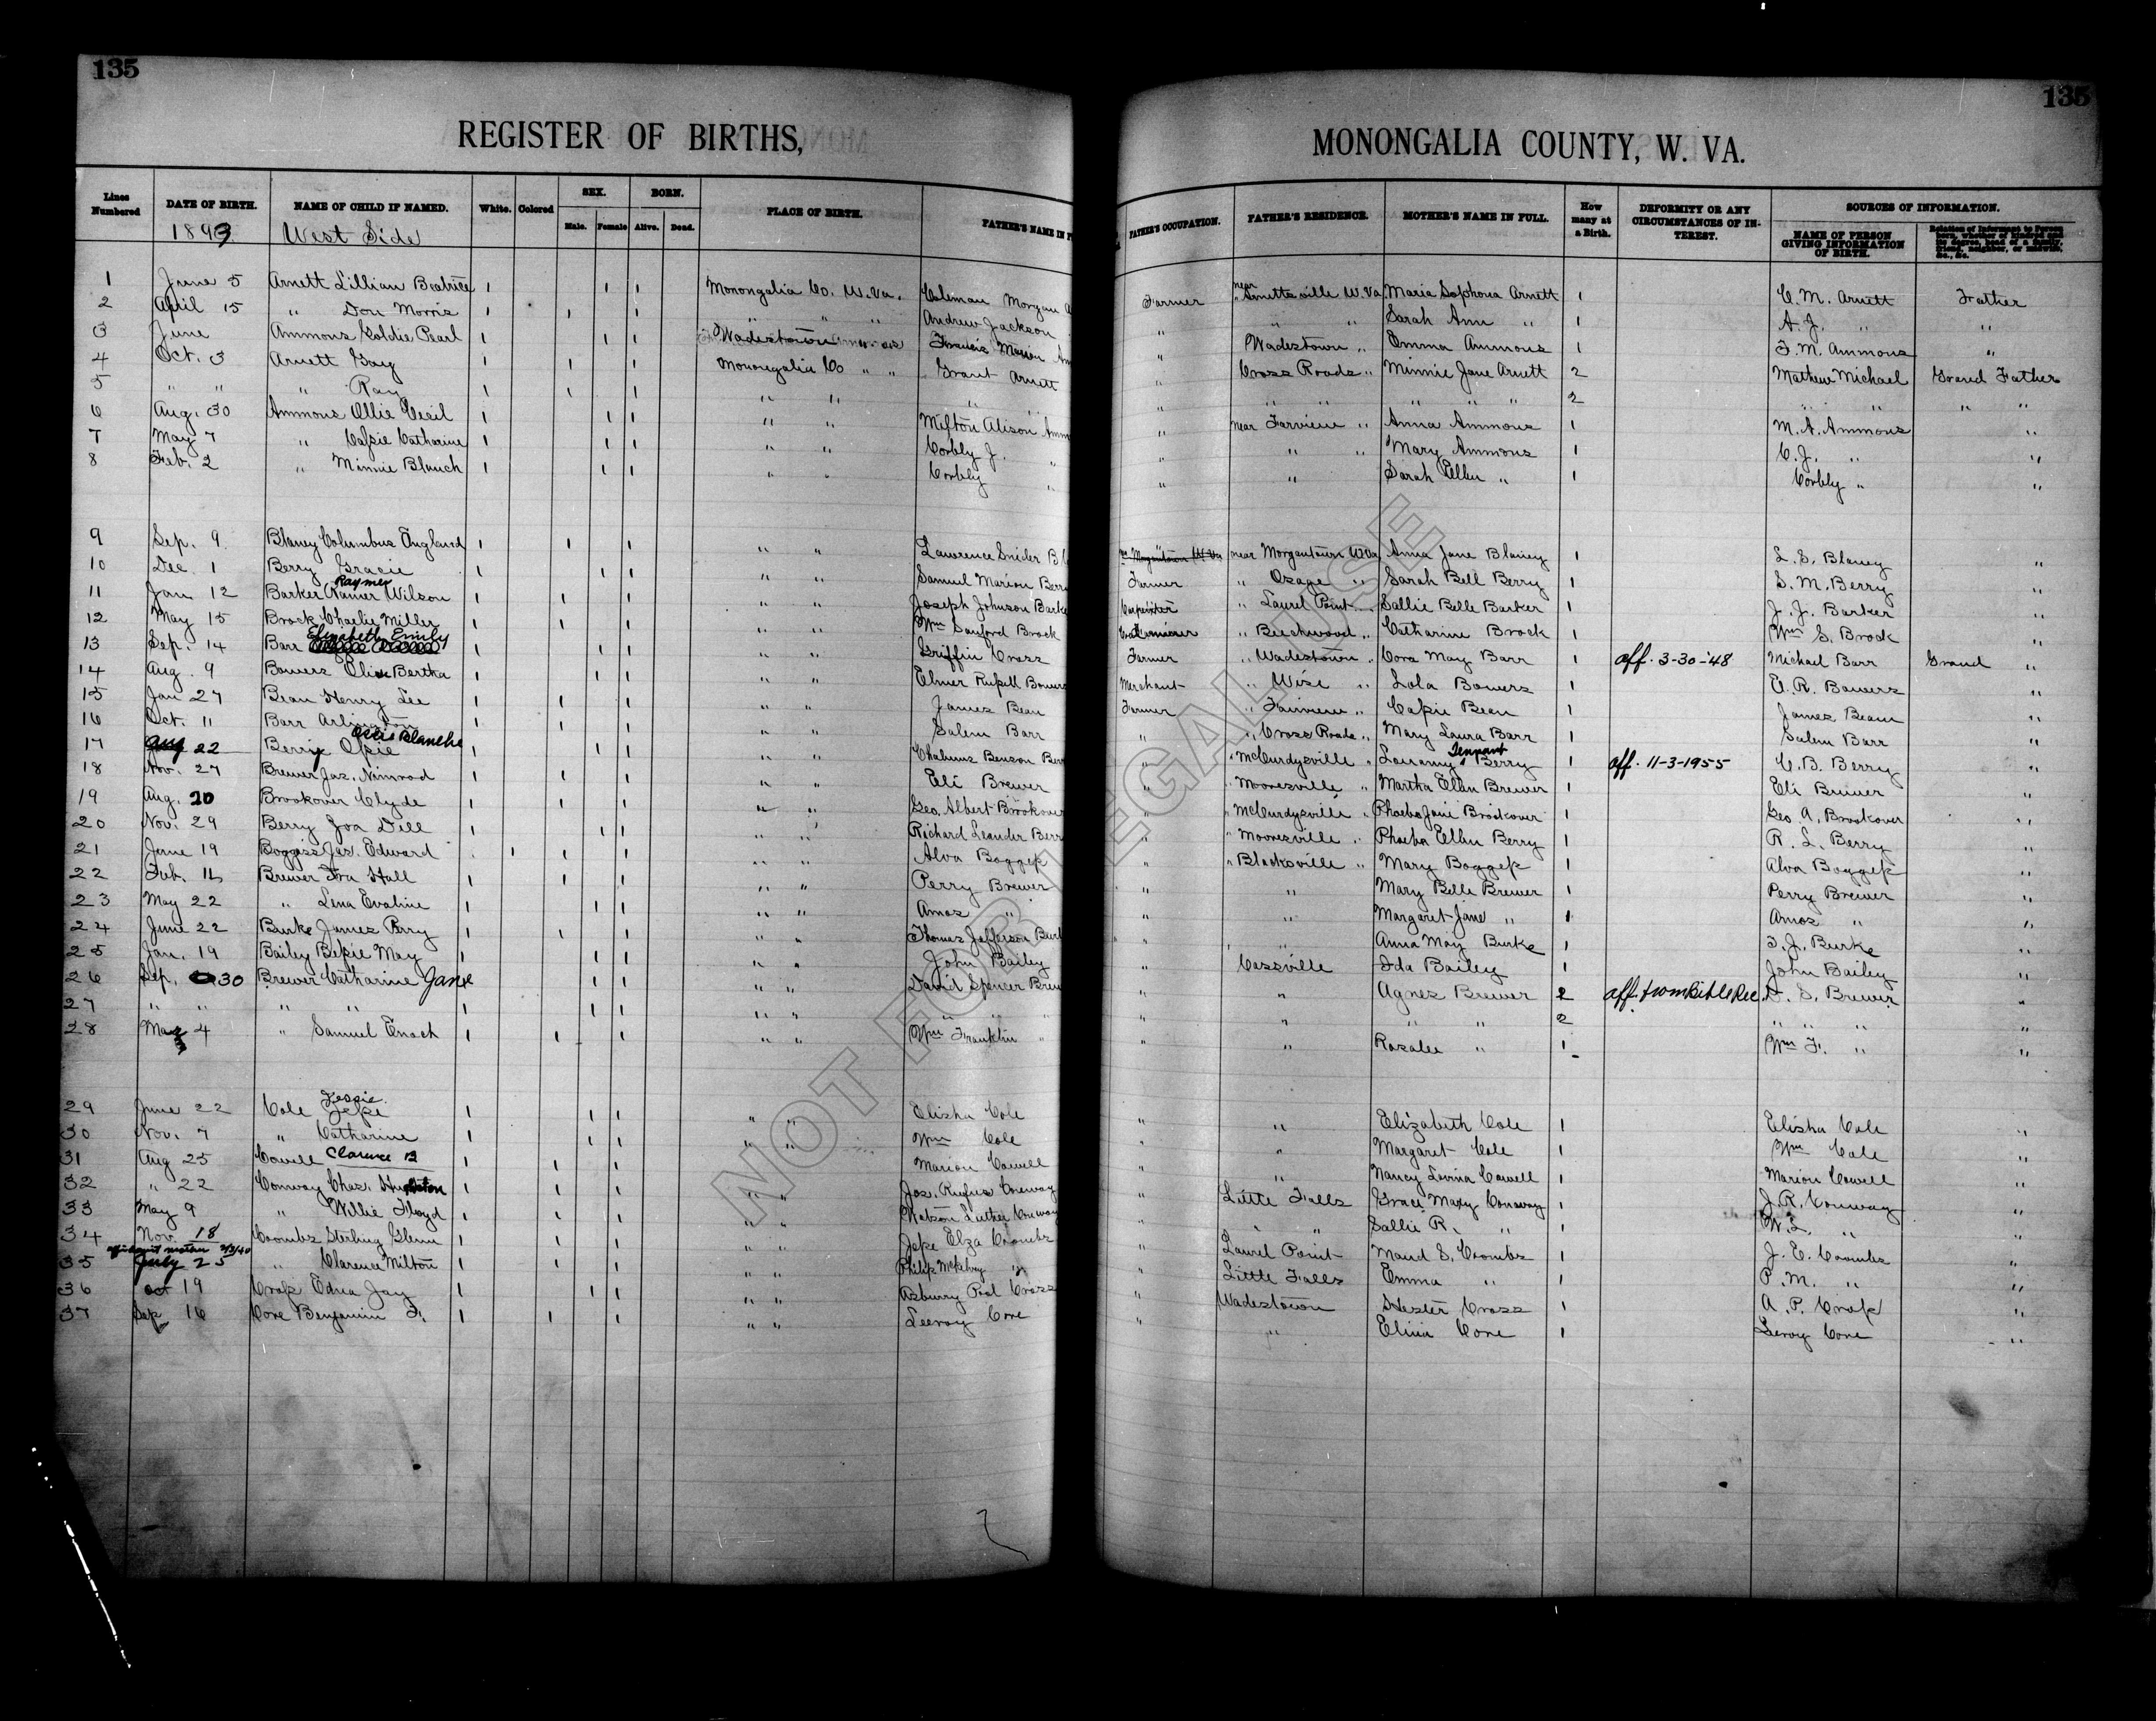 135
135
REGISTER OF BIRTHS, MONONGALIA COUNTY, W. VA.
Lines Numbered DATE OF BIRTH. NAME OF CHILD IF NAMED. White. Colored SEX. Male. Female BORN. Alive. Dead. PLACE OF BIRTH. FATHER'S NAME IN F FATHER'S OCCUPATION. FATHER'S RESIDENCE. MOTHER'S NAME IN FULL. How many at a Birth. DEFORMITY OR ANY CIRCUMSTANCES OF INTEREST. SOURCES OF INFORMATION. NAME OF PERSON GIVING INFORMATION OF BIRTH. Relation of Informant to Person born, whether of kindred and its degree, head of a family, friend, neighbor, or midwife, &c., &c.
1893 West Side
1 June 5 Arnett Lillian Beatrice 1 1 1 Monongalia Co. W.Va. Coleman Morgan A Farmer near Arnettsville W.Va Maria Sophona Arnett 1 C. M. Arnett Father
2 April 15 " Don Morris 1 1 1 " " " Andrew Jackson " " " Sarah Ann " 1 A. J. " "
3 June Ammons Goldie Pearl 1 1 1 Wadestown Francis Marion Am " Wadestown " Emma Ammons 1 F. M. Ammons "
4 Oct. 3 Arnett Gay 1 1 1 Monongalia Co " " Grant Arnett " Cross Roads " Minnie Jane Arnett 2 Mathew Michael Grand Father
5 " " " Ray 1 1 1 " " " " " " " " " " 2 " " " "
6 Aug. 30 Ammons Ollie Cecil 1 1 1 " " Milton Alison Amm " near Farview " Anna Ammons 1 M. A. Ammons "
7 May 7 " Cassie Catharine 1 1 1 " " Corbly J. " " " " Mary Ammons 1 C. J. " "
8 Feb. 2 " Minnie Blanch 1 1 1 " " Corbly " " " Sarah Ellen " 1 Corbly " "
9 Sep. 9 Blaney Columbus England 1 1 1 " " Lawrence Snider Bl near Morgantown W.Va Anna Jane Blaney 1 L. S. Blaney "
10 Dec. 1 Berry Gracie 1 1 1 " " Samuel Marion Berry Farmer " Osage " Sarah Bell Berry 1 S. M. Berry "
Raymer
11 Jan 12 Barker Ramer Wilson 1 1 1 " " Joseph Johnson Barke Carpenter " Laurel Point " Sallie Belle Barker 1 J. J. Barker "
12 May 15 Brock Charlie Miller 1 1 1 " " Wm Sanford Brock " Beechwood " Catharine Brock 1 Wm S. Brock "
Elizabeth Emily
13 Sep. 14 Barr 1 1 1 " " Griffin Cross Farmer " Wadestown " Cora May Barr 1 aff. 3-30-'48 Michael Barr Grand "
14 Aug. 9 Bowers Bertha 1 1 1 " " Elmer Russell Bowers Merchant " Wise " Lola Bowers 1 E. R. Bowers "
15 Jan 27 Bean Henry Lee 1 1 1 " " James Bean Farmer " Fairview " Cassie Bean 1 James Beam "
16 Oct. 11 Barr Arlington 1 1 1 " " Salem Barr " " Cross Roads " Mary Laura Barr 1 Salem Barr "
Blanche Tennant
17 Aug 22 Berry Opie 1 1 1 " " Benson Ber " " McCurdysville " Berry 1 aff. 11-3-1955 C. B. Berry "
18 Nov. 27 Brewer Jas. Nimrod 1 1 1 " " Eli Brewer " " Mooresville " Martha Ellen Brewer 1 Eli Brewer "
19 Aug. 20 Brookover Clyde 1 1 1 " " Geo. Albert Brookover " " McCurdysville " Phoebe Jane Brookover 1 Geo. A. Brookover "
20 Nov. 29 Berry Zoa Dell 1 1 1 " " Richard Leander Berr " " Mooresville " Phoeba Ellen Berry 1 R. L. Berry "
21 June 19 Boggess Jas. Edward 1 1 1 " " Alva Boggess " " Blacksville " Mary Boggess 1 Alva Boggess "
22 Feb. 14 Brewer Ira Hall 1 1 1 " " Perry Brewer " " Mary Belle Brewer 1 Perry Brewer "
23 May 22 " Lena Evaline 1 1 1 " " Amos " " " Margaret Jane " 1 Amos " "
24 June 22 Burke James Perry 1 1 1 " " Thomas Jefferson Burk " " Anna May Burke 1 T. J. Burke "
25 Jan. 19 Bailey Bessie May 1 1 1 " " John Bailey " Cassville Ida Bailey 1 John Bailey "
26 Sep. 30 Brewer Catharine Jane 1 1 1 " " David Spencer Brew " " Agnes Brewer 2 aff. from Bible Rec. D. S. Brewer "
27 " " " " 1 1 1 " " " " " " " " " 2 " " " "
28 May 4 " Samuel Enoch 1 1 1 " " Wm Franklin " " " Rosalee " 1 Wm F. " "
Jessie
29 June 22 Cole Jesse 1 1 1 " " Elisha Cole " " Elizabeth Cole 1 Elisha Cole "
30 Nov. 7 " Catharine 1 1 1 " " Wm Cole " " Margaret Cole 1 Wm Cole "
31 Aug 25 Cowell Clarence B 1 1 1 Marion Cowell " " Nancy Lovina Cowell 1 Marion Cowell "
32 " 22 Conway Chas. 1 1 1 " " Jos. Rufus Conway " Little Falls Grace Mary Conaway 1 J. R. Conway "
33 May 9 " Willie Floyd 1 1 1 Watson Luther Conway " " " Sallie R. " 1 W. L. " "
34 Nov. 18 Coombs Sterling Glenn 1 1 1 " " Jesse Elza Coombs " Laurel Point Maud S. Coombs 1 J. E. Coombs "
affidavit mother 2/3/40
35 July 25 " Clarence Milton 1 1 1 " " Philip McKelvey " " Little Falls Emma " 1 P. M. " "
36 Oct 19 Cross Edna Jay 1 1 1 " " Asburry Pool Cross " Wadestown Hester Cross 1 A. P. Cross "
37 Sep 16 Core Benjamin F. 1 1 1 " " Leeroy Core " " Elina Core 1 Leroy Core "
NOT FOR LEGAL USE